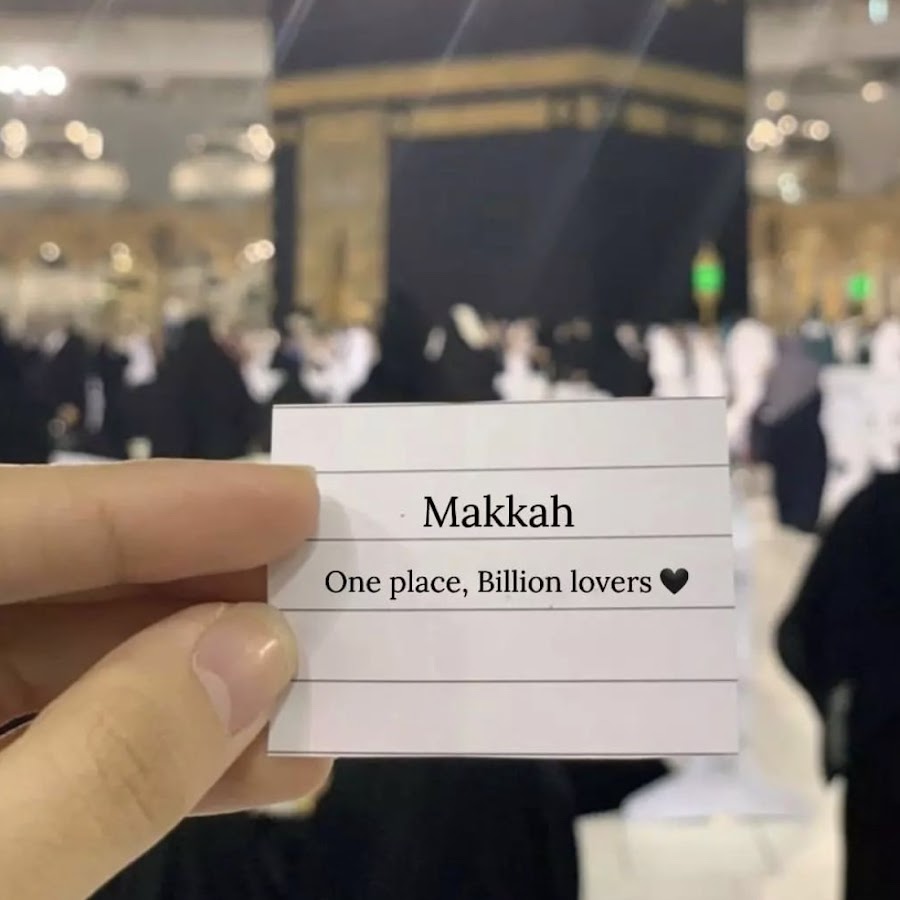 Makkah
One place, Billion lovers 🖤